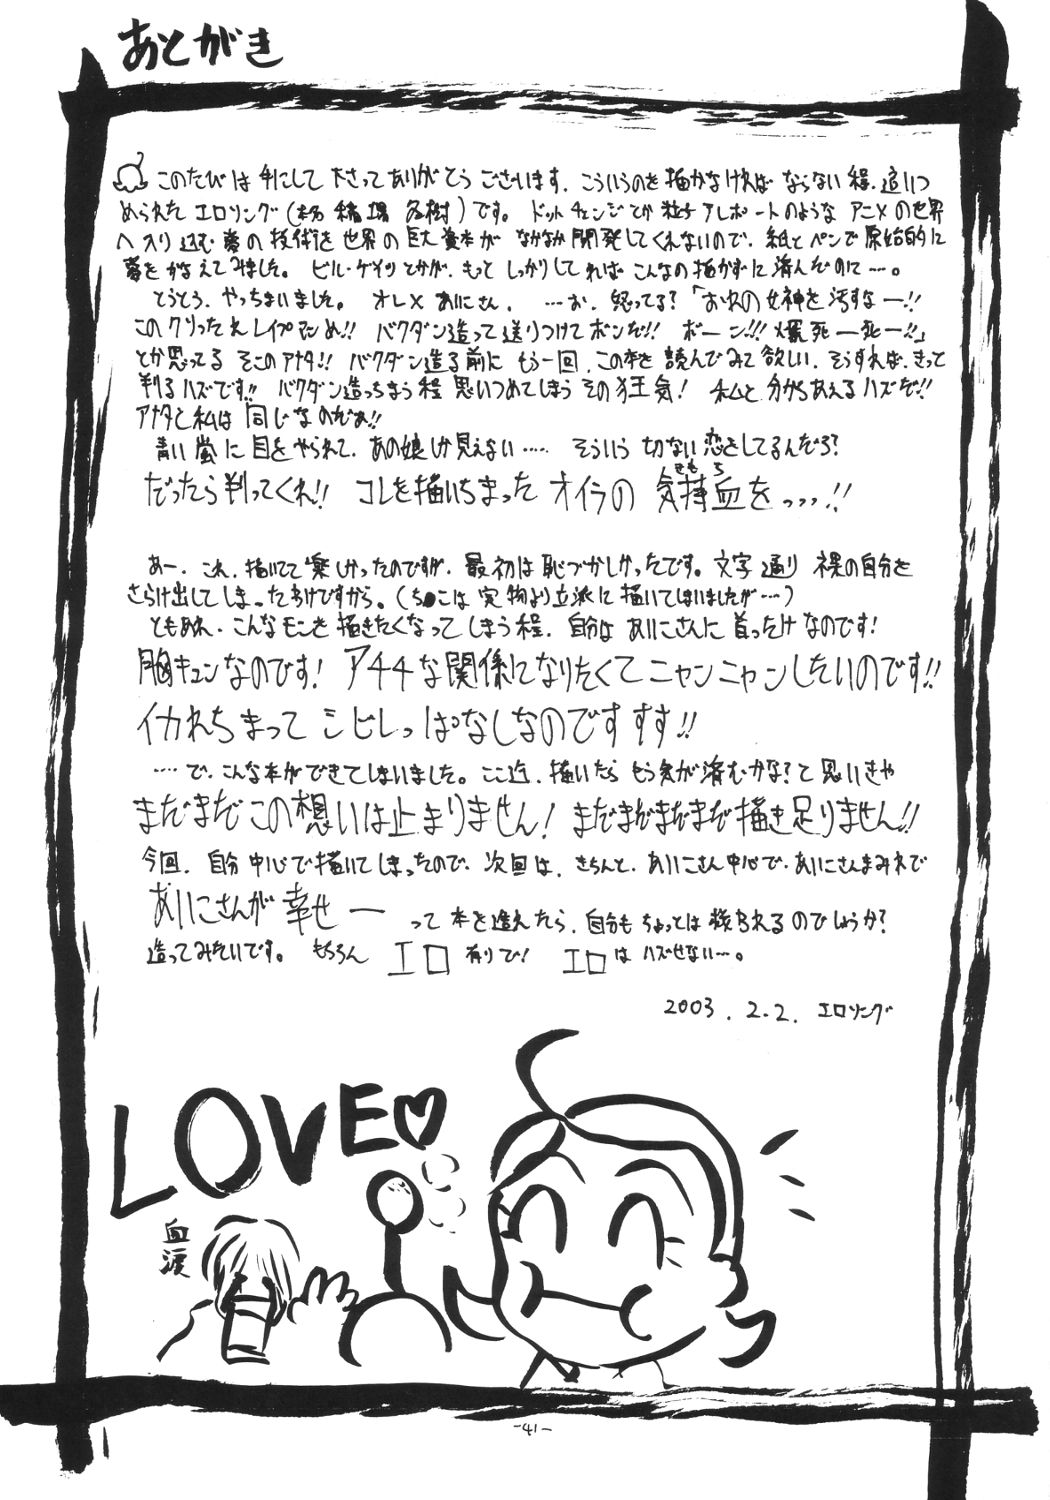 あとがき
このたびは手にして下さってありがとうございます．こういうのを描かなければならない程．追いつ
められたエロソング（本名 稲場 冬樹）です。ドットチェンジとか粒子アレポートのようなアニメの世界
へ入り込む夢の技術を世界の巨大資本がなかなか開発してくれないので．紙とペンで原始的に
夢をかなえてみました。ビル・ゲイツとかが．もっとしっかりしてればこんなの描かずに済んだのに…。
とうとう．やっちまいました。オレ×あいにさん． …お．怒ってる？「おれの女神を汚すなー!!
このクソったれレイプマンめ!! バクダン造って送りつけてボンだ!! ボーン!!! 爆死ー死ー!!」
とか思ってるそこのアナタ!! バクダン造る前にもう一回．この本を読んでみて欲しい．そうすれば．きっと
判るハズです!! バクダン造っちまう程思いつめてしまうその狂気！ 私と分かちあえるハズだ!!
アナタと私は同じなのだぁ!!
青い嵐に目をやられて．あの娘しか見えない…‥ そういう切ない恋をしてるんだろ？
だったら判ってくれ!! コレを描いちまったオイラの気持血を っっっ．!!
きもち
あー．これ．描いてて楽しかったのですが．最初は恥づかしかったです。文字通り裸の自分を
さらけ出してしまったわけですから。（ち●こは実物より立派に描いてしまいましたが…）
ともあれ．こんなモンを描きたくなってしまう程．自分はあいにさんに首ったけなのです！
胸キュンなのです！アチチな関係になりたくてニャンニャンしたいのです!!
イカれちまってシビレっぱなしなのですすす!!
…‥で．こんな本ができてしまいました。ここ迄．描いたらもう気が済むかな？と思いきや
まだまだこの想いは止まりません！まだまだまだまだ描き足りません!!
今回．自分中心で描いてしまったので．次回は．きちんと．あいにさん中心で．あいにさんまみれで
あいにさんが幸せー って本を造れたら．自分もちょっとは救われるのでしょうか？
造ってみたいです。もちろん エロ有りで！ エロはハズせない…。
2003．2.2．エロソング
LOVE♡
血涙
-41-